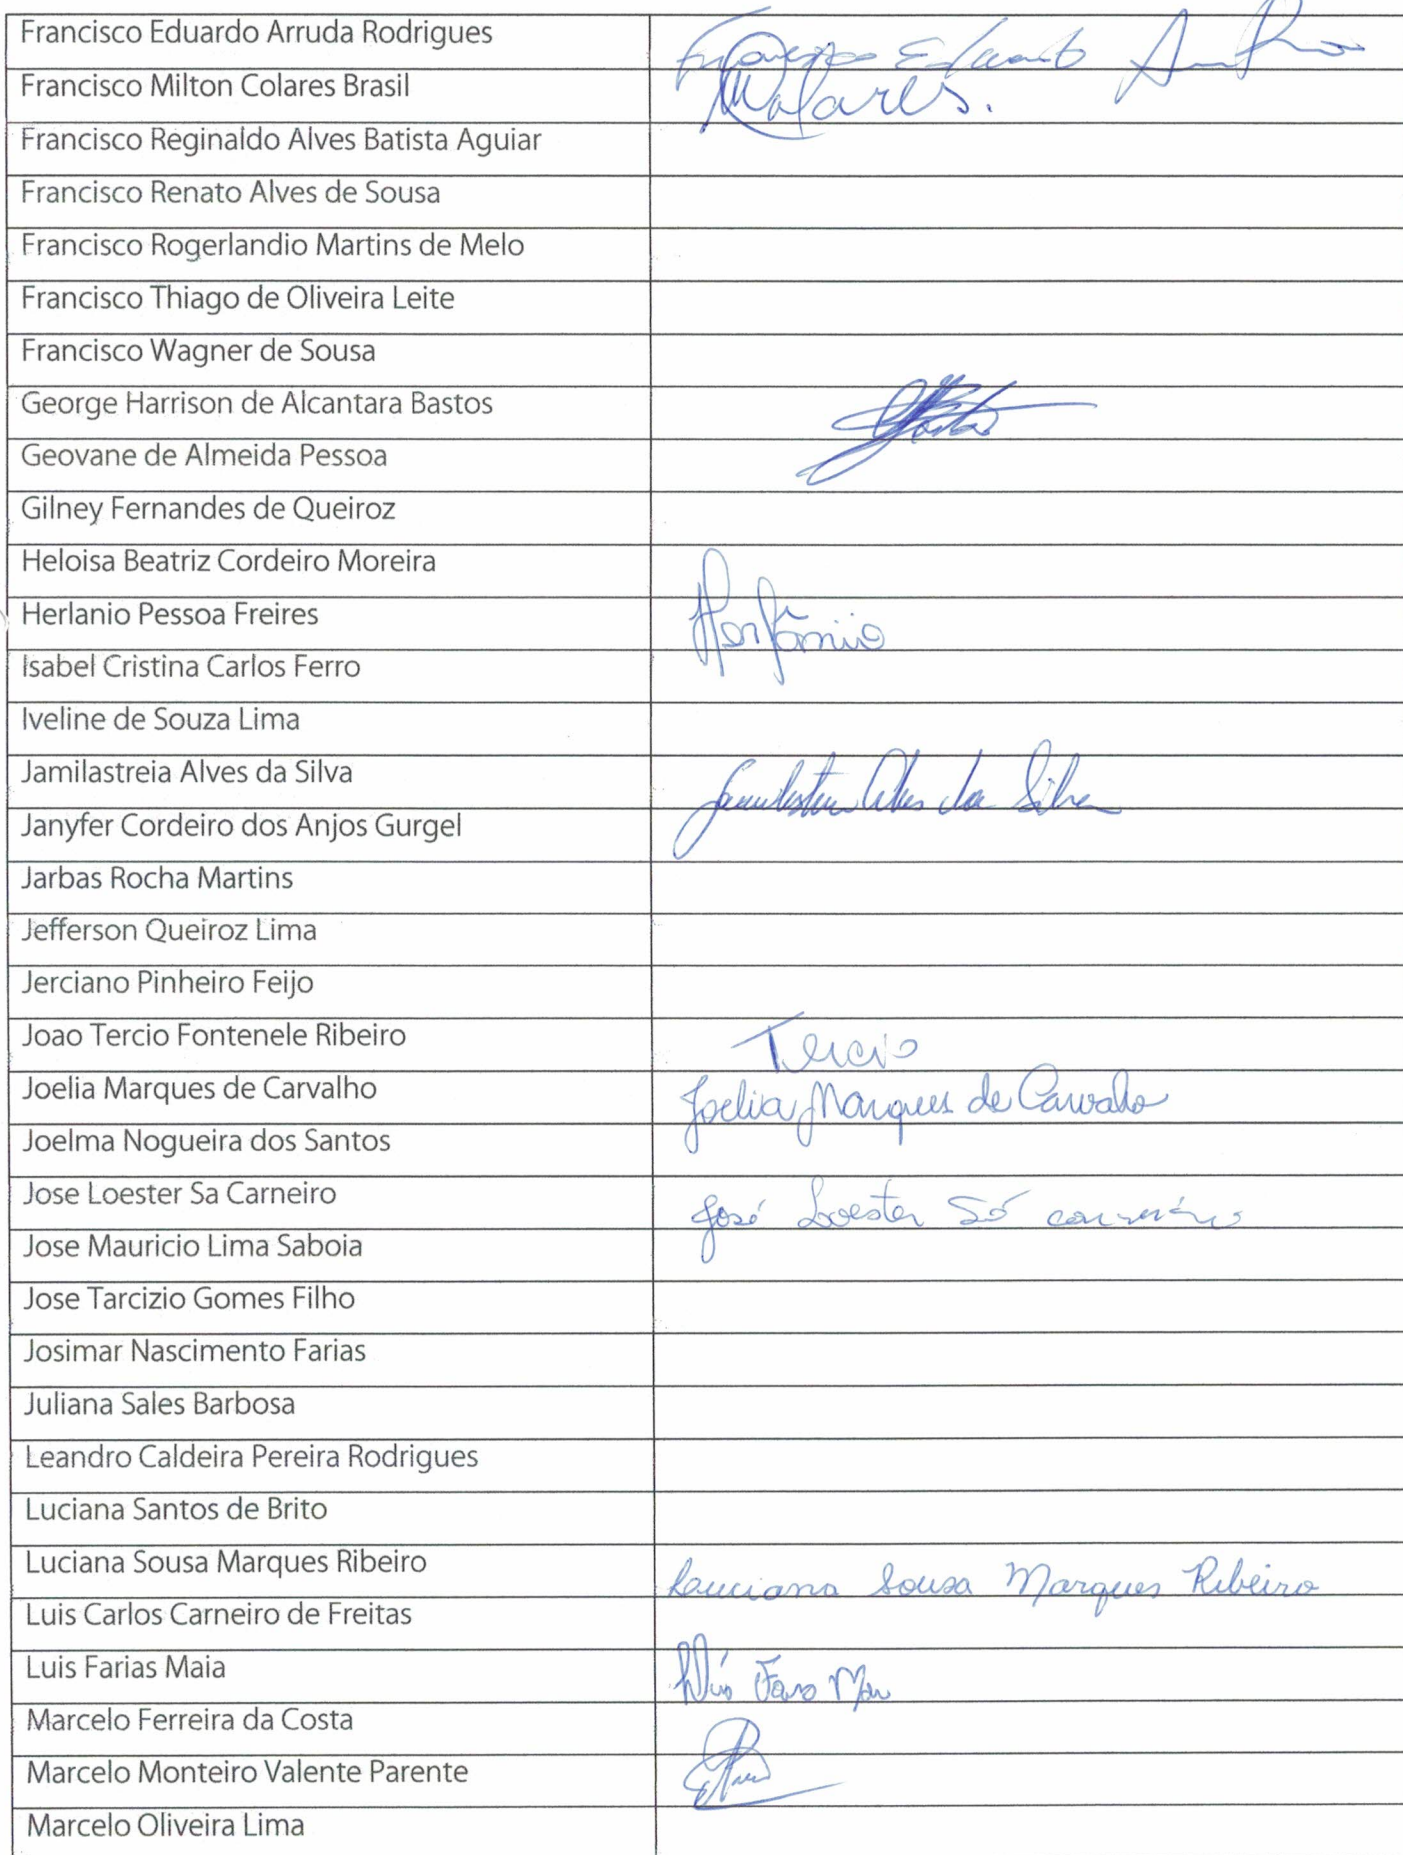 Francisco Eduardo Arruda Rodrigues Francisco Eduardo
Francisco Milton Colares Brasil Colares.
Francisco Reginaldo Alves Batista Aguiar
Francisco Renato Alves de Sousa
Francisco Rogerlandio Martins de Melo
Francisco Thiago de Oliveira Leite
Francisco Wagner de Sousa
George Harrison de Alcantara Bastos
Geovane de Almeida Pessoa
Gilney Fernandes de Queiroz
Heloisa Beatriz Cordeiro Moreira
Herlanio Pessoa Freires
Isabel Cristina Carlos Ferro
Iveline de Souza Lima
Jamilastreia Alves da Silva Jamilastreia Alves da Silva
Janyfer Cordeiro dos Anjos Gurgel
Jarbas Rocha Martins
Jefferson Queiroz Lima
Jerciano Pinheiro Feijo
Joao Tercio Fontenele Ribeiro Tercio
Joelia Marques de Carvalho Joelia Marques de Carvalho
Joelma Nogueira dos Santos
Jose Loester Sa Carneiro José Loester Sá Carneiro
Jose Mauricio Lima Saboia
Jose Tarcizio Gomes Filho
Josimar Nascimento Farias
Juliana Sales Barbosa
Leandro Caldeira Pereira Rodrigues
Luciana Santos de Brito
Luciana Sousa Marques Ribeiro Luciana Sousa Marques Ribeiro
Luis Carlos Carneiro de Freitas
Luis Farias Maia
Marcelo Ferreira da Costa
Marcelo Monteiro Valente Parente
Marcelo Oliveira Lima